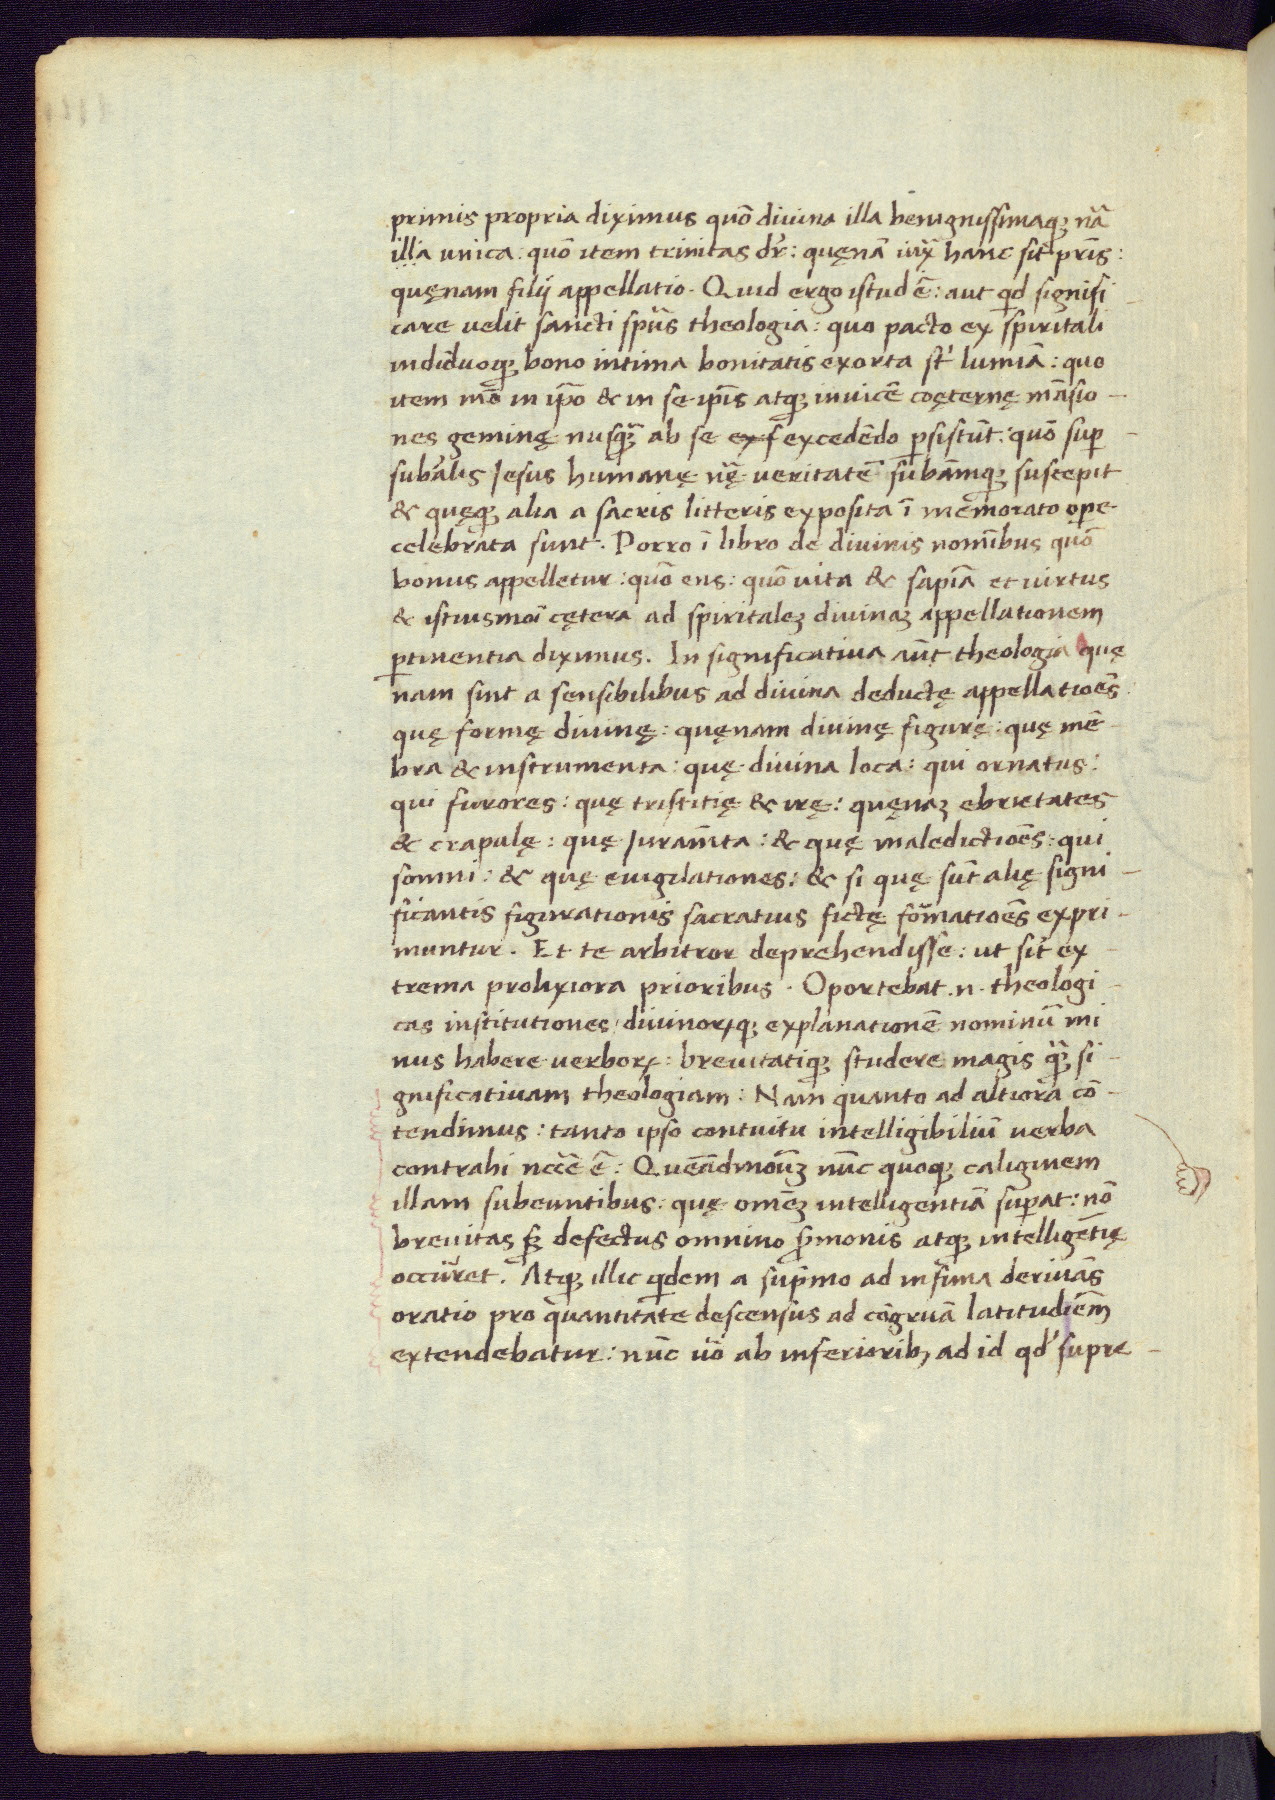 primis propria diximus quō diuina illa benignissimaqȝ nā
illa unica: quō item trinitas dr̄: quęnā iux̄ hanc sit pr̄is:
quęnam filij appellatio. Quid ergo istud ē: aut qͥd signifi-
care uelit sancti sp̄us theologia: quo pacto ex spiritali
indiuiduoqȝ bono intima bonitatis exorta st̄ lumīa: quo
item mō in ip̄o & in se ip̄is atqȝ inuicē coęternę māsio-
nes geminę nusqȝ̄ ab se exs excedēdo ꝑsistūt: quō suꝑ-
sub̄alis Jesus humanę nr̄ę ueritatē sub̄amqȝ suscepit
& quęqȝ alia a sacris litteris exposita ī memorato oꝑe
celebrata sunt. Porro ī libro de diuinis nomībus quō
bonus appelletur: quō ens: quō uita & sapīa et uirtus
& istiusmoī cętera ad spiritaleȝ diuinaȝ appellationem
ꝑtinentia diximus. In significatiua aūt theologia quę
nam sint a sensibilibus ad diuina deductę appellatiōes
quę formę diuinę: quęnam diuinę figurę: quę mē-
bra & instrumenta: quę diuina loca: qui ornatus:
qui furores: quę tristitię & irę: quęnaȝ ebrietates
& crapulę: quę Juram̄ta: & quę maledictiōes: qui
somni: & quę euigilationes: & si quę sūt alię signi-
ficantis figurationis sacratius fictę formatiōes expri-
muntur. Et te arbitror deprehendisse: ut sit ex-
trema prolixiora prioribus. Oportebat .n. theologi-
cas institutiones, diuinoꝝqȝ explanationē nominū mi
nus habere uerboꝝ: breuitatiqȝ studere magis qȝ̄ si-
gnificatiuam theologiam: Nam quanto ad altiora cō-
tendimus: tanto ipso contuitu intelligibiliū uerba
contrahi nccē ē: Queādmoūȝ nūc quoqȝ caliginem
illam subeuntibus: quę omēȝ intelligentiā suꝑat: nō
breuitas sȝ defectus omnino ẜmonis atqȝ intelligētię
occurret. Atqȝ illic qͥdem a sup̄mo ad infima deriuās
oratio pro quantitate descensus ad cōgruā latitudiēm
extendebatur: nūc uō ab inferioribȝ ad id qd̓ supre-